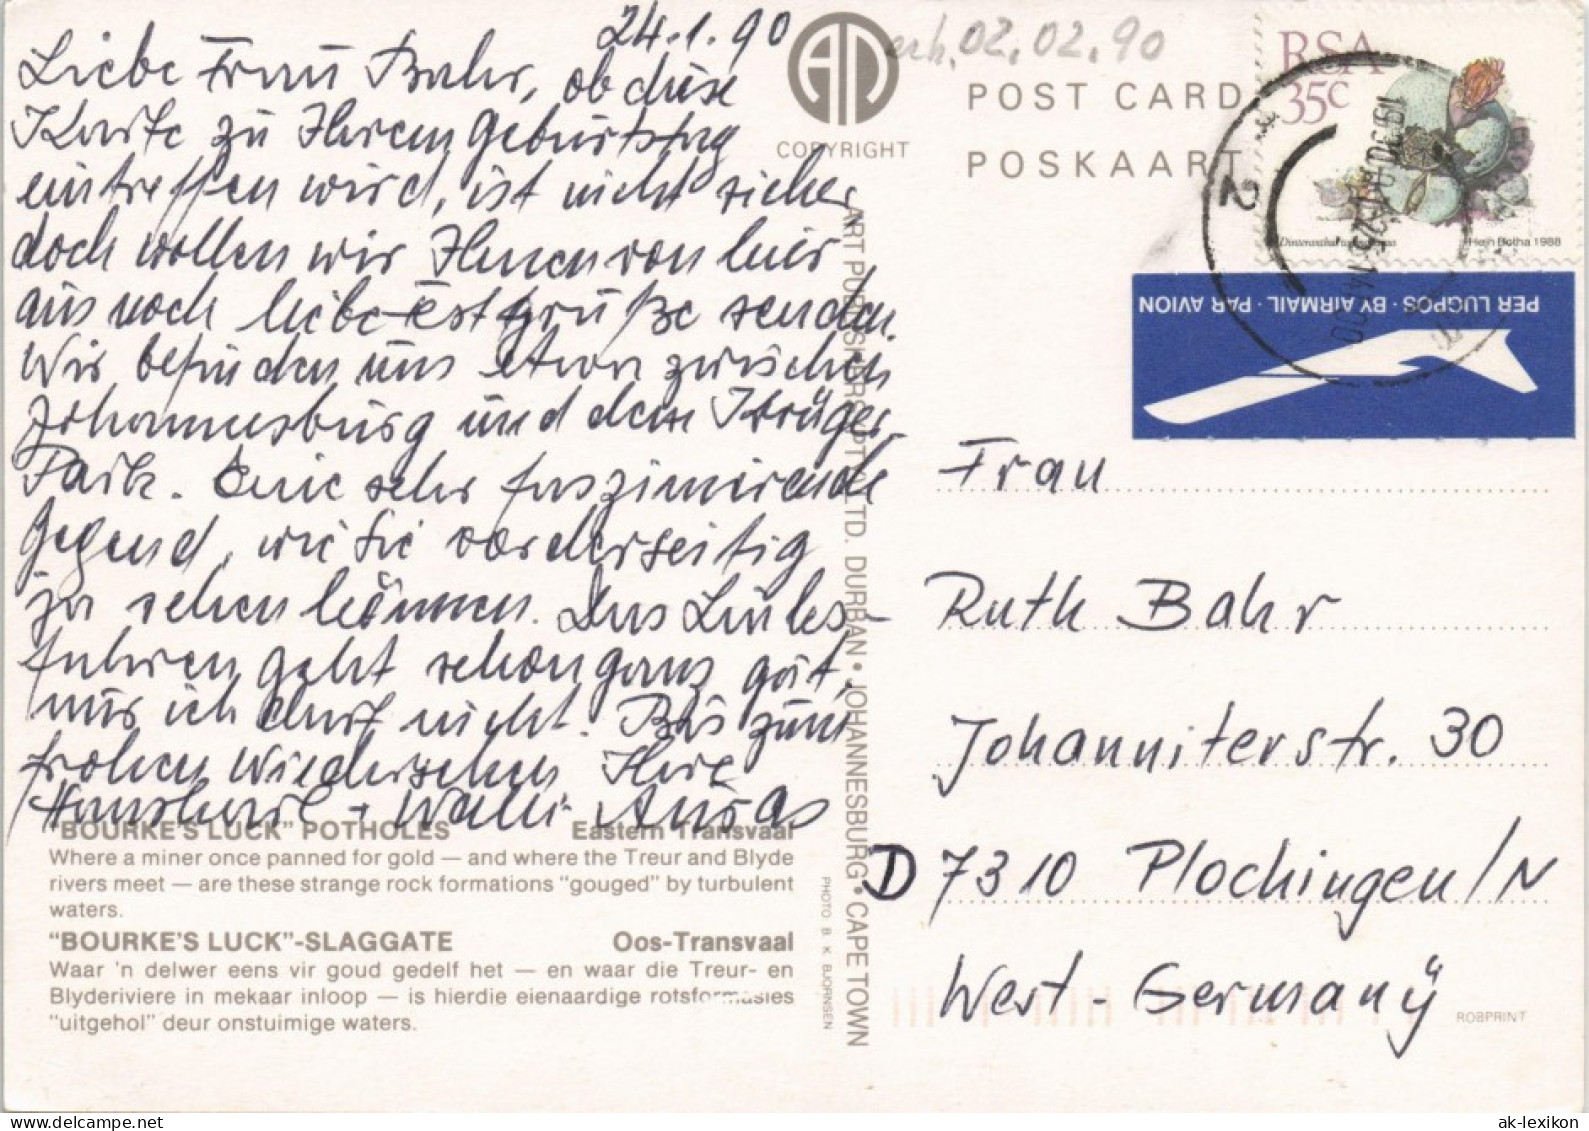 24.1.90
Liebe Frau Bahr, ob diese
Karte zu Ihrem Geburtstag
eintreffen wird, ist nicht sicher,
doch wollen wir Ihnen von hier
aus noch liebe Grüße senden.
Wir befinden uns etwa zwischen
Johannesburg und dem Krüger-
Park. Eine sehr faszinierende
Gegend, wie Sie vorderseitig
zu sehen können. Das Links-
fahren geht schon ganz gut,
nur ich darf nicht. Bis zum
frohen Wiedersehen Ihre
"BOURKE'S LUCK" POTHOLES Eastern Transvaal
Where a miner once panned for gold — and where the Treur and Blyde
rivers meet — are these strange rock formations "gouged" by turbulent
waters.
"BOURKE'S LUCK"-SLAGGATE Oos-Transvaal
Waar 'n delwer eens vir goud gedelf het — en waar die Treur- en
Blyderiviere in mekaar inloop — is hierdie eienaardige rotsformasies
"uitgehol" deur onstuimige waters.
COPYRIGHT
ART PUBLISHERS (PTY) LTD. DURBAN • JOHANNESBURG • CAPE TOWN
PHOTO B. K. BJORNSEN
erh. 02.02.90
POST CARD
POSKAART
RSA
35c
Hein Botha 1988
2
PER LUGPOS · BY AIRMAIL · PAR AVION
Frau
Ruth Bahr
Johanniterstr. 30
D 7310 Plochingen/N
West-Germany
ROBPRINT
ak-lexikon
www.delcampe.net